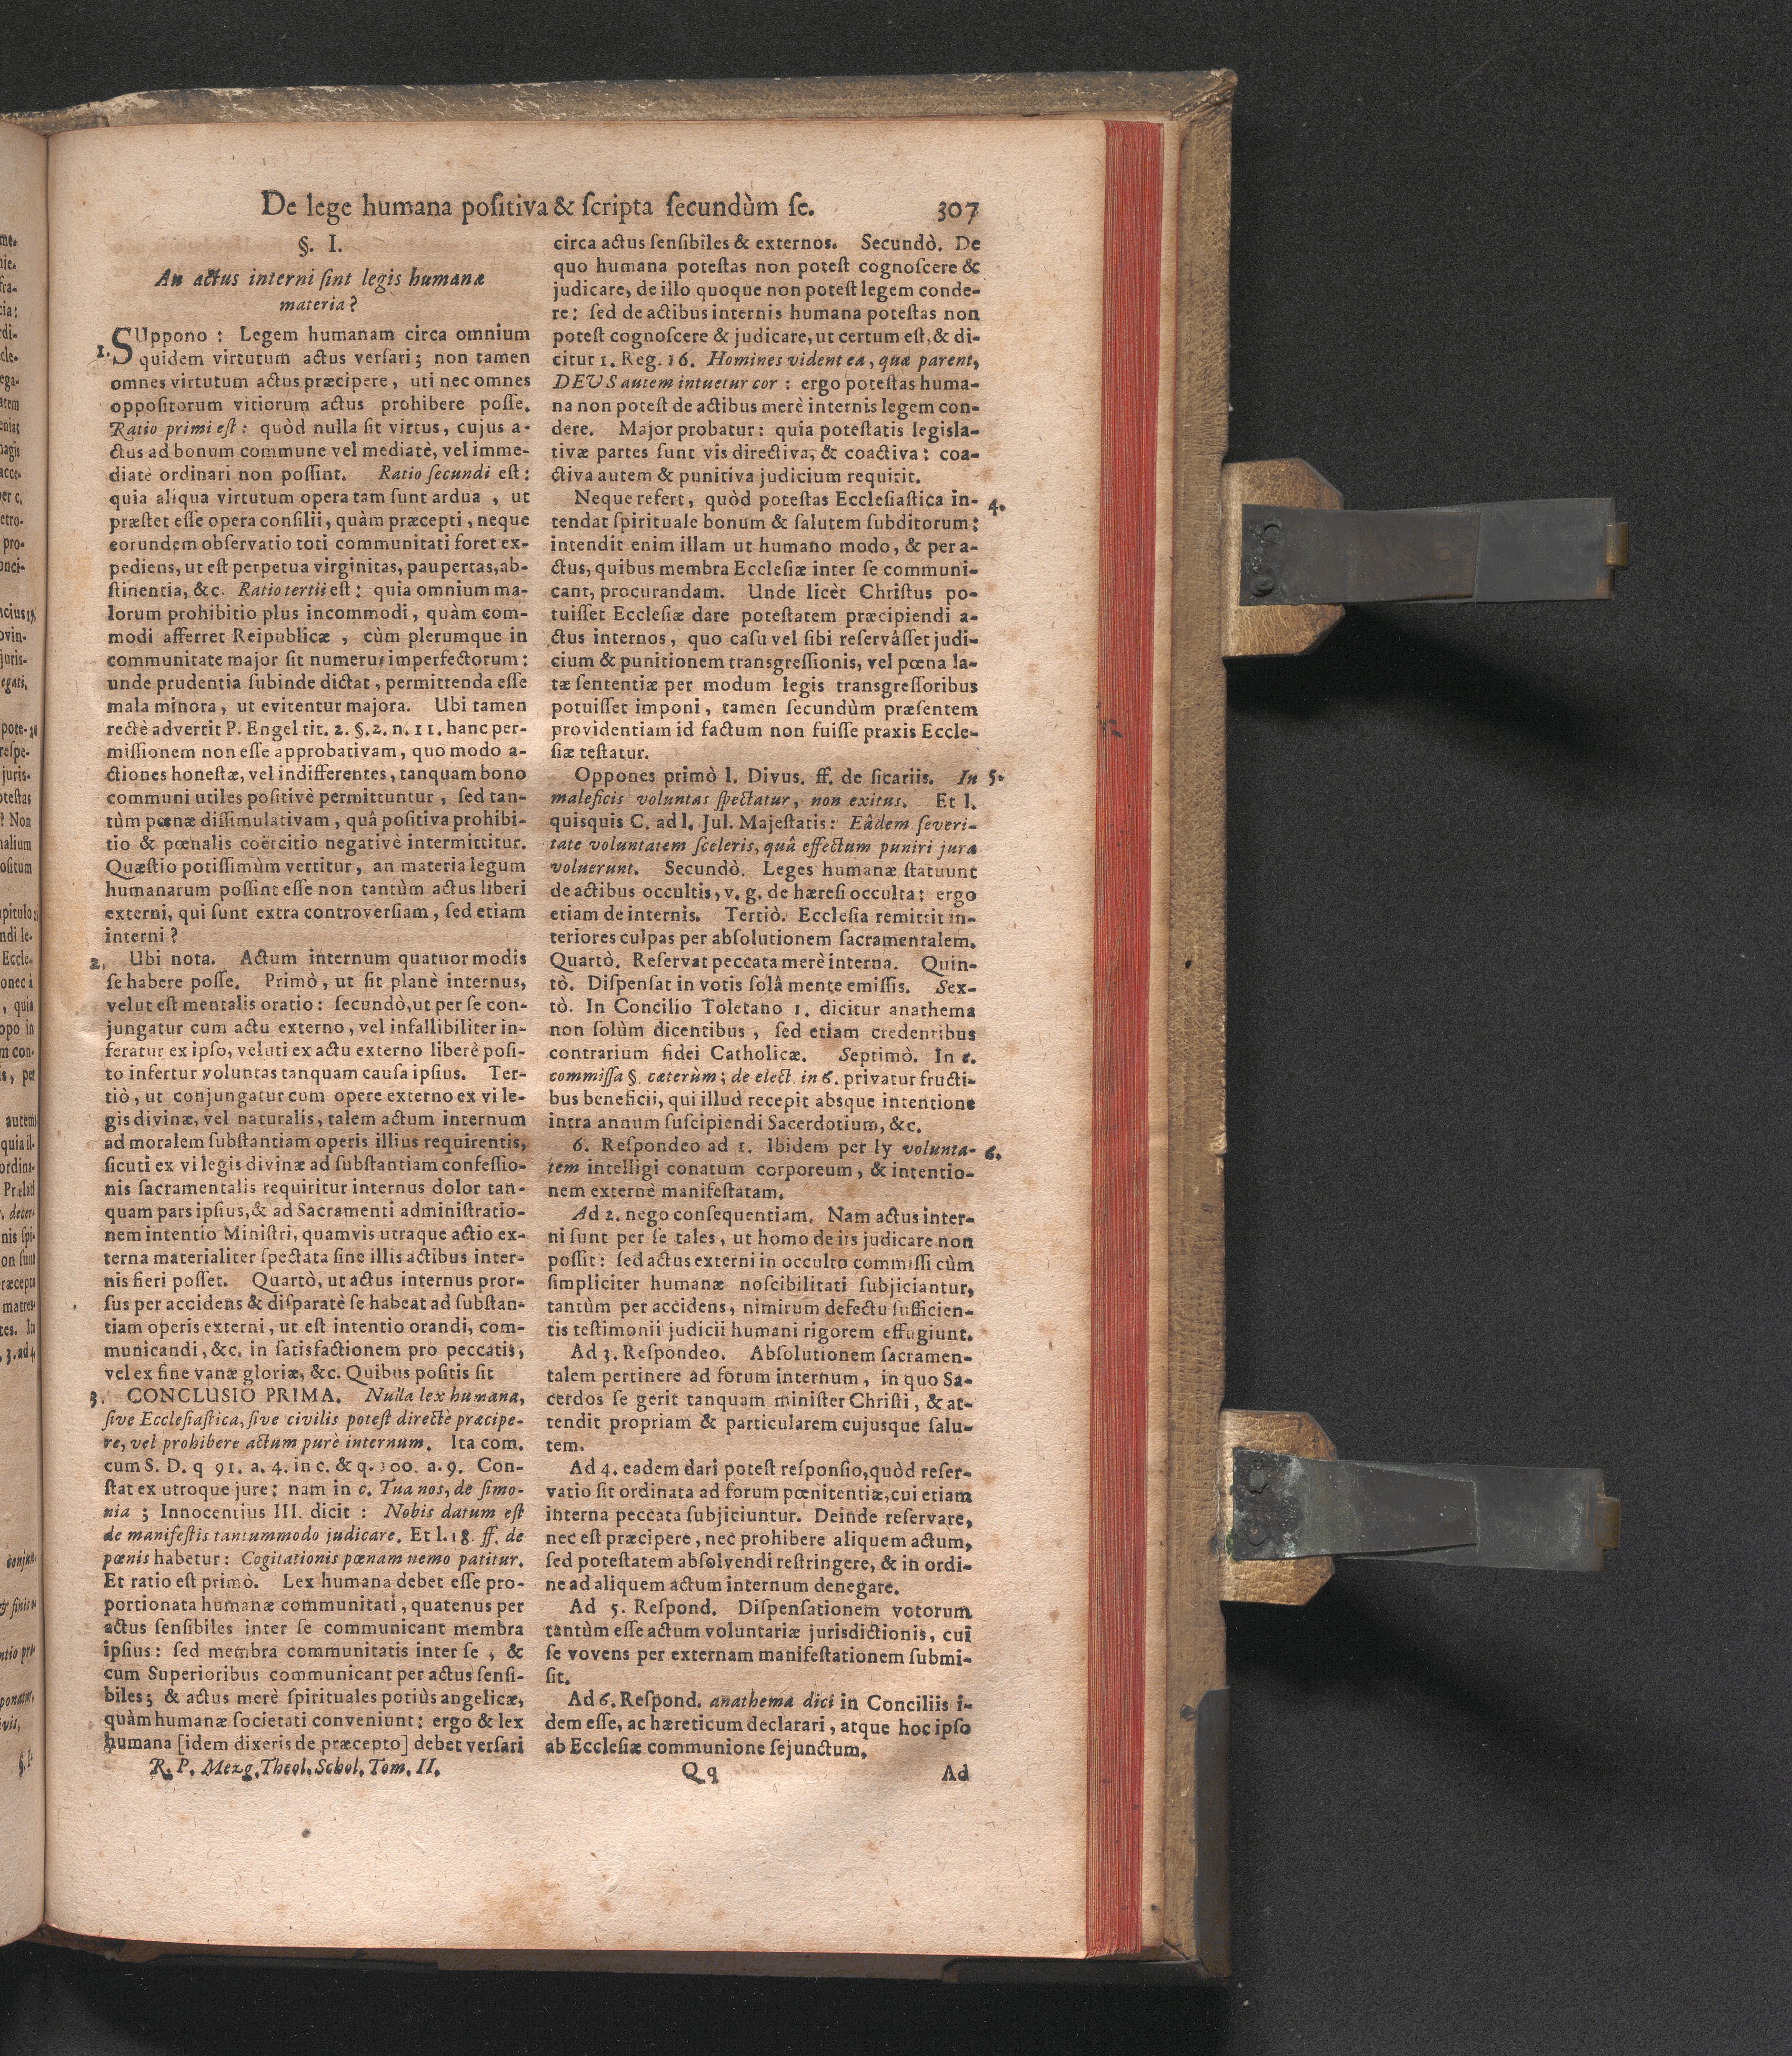 De lege humana positiva & ſcripta ſecundùm ſe. 307
§. I.
An actus interni ſint legis humanæ
materia?
1. SUppono : Legem humanam circa omnium
quidem virtutum actus verſari; non tamen
omnes virtutum actus præcipere, uti nec omnes
oppoſitorum vitiorum actus prohibere poſſe.
Ratio primi eſt: quòd nulla ſit virtus, cujus a-
ctus ad bonum commune vel mediatè, vel imme-
diatè ordinari non poſſint. Ratio ſecundi eſt:
quia aliqua virtutum opera tam ſunt ardua , ut
præſtet eſſe opera conſilii, quàm præcepti, neque
eorundem obſervatio toti communitati foret ex-
pediens, ut eſt perpetua virginitas, paupertas, ab-
ſtinentia, &c. Ratio tertii eſt: quia omnium ma-
lorum prohibitio plus incommodi, quàm com-
modi afferret Reipublicæ , cùm plerumque in
communitate major ſit numerus imperfectorum:
unde prudentia ſubinde dictat, permittenda eſſe
mala minora, ut evitentur majora. Ubi tamen
rectè advertit P. Engel tit. 2. §. 2. n. 11. hanc per-
miſſionem non eſſe approbativam, quo modo a-
ctiones honeſtæ, vel indifferentes, tanquam bono
communi utiles poſitivè permittuntur , ſed tan-
tùm pœnæ diſſimulativam, quâ poſitiva prohibi-
tio & pœnalis coërcitio negativè intermittitur.
Quæſtio potiſſimùm vertitur, an materia legum
humanarum poſſint eſſe non tantùm actus liberi
externi, qui ſunt extra controverſiam, ſed etiam
interni?
2. Ubi nota. Actum internum quatuor modis
ſe habere poſſe. Primò, ut ſit planè internus,
velut eſt mentalis oratio: ſecundò, ut per ſe con-
jungatur cum actu externo, vel infallibiliter in-
feratur ex ipſo, veluti ex actu externo liberè poſi-
to infertur voluntas tanquam cauſa ipſius. Ter-
tiò, ut conjungatur cum opere externo ex vi le-
gis divinæ, vel naturalis, talem actum internum
ad moralem ſubſtantiam operis illius requirentis,
ſicuti ex vi legis divinæ ad ſubſtantiam confeſſio-
nis ſacramentalis requiritur internus dolor tan-
quam pars ipſius, & ad Sacramenti adminiſtratio-
nem intentio Miniſtri, quamvis utraque actio ex-
terna materialiter ſpectata ſine illis actibus inter-
nis fieri poſſet. Quartò, ut actus internus pror-
ſus per accidens & diſparatè ſe habeat ad ſubſtan-
tiam operis externi, ut eſt intentio orandi, com-
municandi, &c. in ſatisfactionem pro peccatis,
vel ex fine vanæ gloriæ, &c. Quibus poſitis ſit
3. CONCLUSIO PRIMA. Nulla lex humana,
ſive Eccleſiaſtica, ſive civilis poteſt directè præcipe-
re, vel prohibere actum purè internum. Ita com.
cum S. D. q 91. a. 4. in c. & q. 100. a. 9. Con-
ſtat ex utroque jure: nam in c. Tua nos, de ſimo-
nia ; Innocentius III. dicit : Nobis datum eſt
de manifeſtis tantummodo judicare. Et l. 18. ff. de
pœnis habetur: Cogitationis pœnam nemo patitur.
Et ratio eſt primò. Lex humana debet eſſe pro-
portionata humanæ communitati, quatenus per
actus ſenſibiles inter ſe communicant membra
ipſius: ſed membra communitatis inter ſe , &
cum Superioribus communicant per actus ſenſi-
biles; & actus merè ſpirituales potiùs angelicæ,
quàm humanæ ſocietati conveniunt: ergo & lex
humana [idem dixeris de præcepto] debet verſari
circa actus ſenſibiles & externos. Secundò. De
quo humana poteſtas non poteſt cognoſcere &
judicare, de illo quoque non poteſt legem conde-
re: ſed de actibus internis humana poteſtas non
poteſt cognoſcere & judicare, ut certum eſt, & di-
citur 1. Reg. 16. Homines vident ea, quæ parent,
DEUS autem intuetur cor : ergo poteſtas huma-
na non poteſt de actibus merè internis legem con-
dere. Major probatur: quia poteſtatis legisla-
tivæ partes ſunt vis directiva, & coactiva: coa-
ctiva autem & punitiva judicium requirit.
Neque refert, quòd poteſtas Eccleſiaſtica in- 4.
tendat ſpirituale bonum & ſalutem ſubditorum;
intendit enim illam ut humano modo, & per a-
ctus, quibus membra Eccleſiæ inter ſe communi-
cant, procurandam. Unde licèt Chriſtus po-
tuiſſet Eccleſiæ dare poteſtatem præcipiendi a-
ctus internos, quo caſu vel ſibi reſervâſſet judi-
cium & punitionem transgreſſionis, vel pœna la-
tæ ſententiæ per modum legis transgreſſoribus
potuiſſet imponi, tamen ſecundùm præſentem
providentiam id factum non fuiſſe praxis Eccle-
ſiæ teſtatur.
Oppones primò l. Divus. ff. de ſicariis. In 5.
maleficis voluntas ſpectatur, non exitus. Et l.
quisquis C. ad l. Jul. Majeſtatis: Eâdem ſeveri-
tate voluntatem ſceleris, quâ effectum puniri jura
voluerunt. Secundò. Leges humanæ ſtatuunt
de actibus occultis, v. g. de hæreſi occulta: ergo
etiam de internis. Tertiò. Eccleſia remittit in-
teriores culpas per abſolutionem ſacramentalem.
Quartò. Reſervat peccata merè interna. Quin-
tò. Diſpenſat in votis ſolâ mente emiſſis. Sex-
tò. In Concilio Toletano 1. dicitur anathema
non ſolùm dicentibus , ſed etiam credentibus
contrarium fidei Catholicæ. Septimò. In c.
commiſſa §. cæterùm; de elect. in 6. privatur fructi-
bus beneficii, qui illud recepit absque intentione
intra annum ſuſcipiendi Sacerdotium, &c.
6. Reſpondeo ad 1. Ibidem per ly volunta- 6.
tem intelligi conatum corporeum, & intentio-
nem externè manifeſtatam.
Ad 2. nego conſequentiam. Nam actus inter-
ni ſunt per ſe tales, ut homo de iis judicare non
poſſit: ſed actus externi in occulto commiſſi cùm
ſimpliciter humanæ noſcibilitati ſubjiciantur,
tantùm per accidens, nimirum defectu ſufficien-
tis teſtimonii judicii humani rigorem effugiunt.
Ad 3. Reſpondeo. Abſolutionem ſacramen-
talem pertinere ad forum internum, in quo Sa-
cerdos ſe gerit tanquam miniſter Chriſti, & at-
tendit propriam & particularem cujusque ſalu-
tem.
Ad 4. eadem dari poteſt reſponſio, quòd reſer-
vatio ſit ordinata ad forum pœnitentiæ, cui etiam
interna peccata ſubjiciuntur. Deinde reſervare,
nec eſt præcipere, nec prohibere aliquem actum,
ſed poteſtatem abſolvendi reſtringere, & in ordi-
ne ad aliquem actum internum denegare.
Ad 5. Reſpond. Diſpenſationem votorum
tantùm eſſe actum voluntariæ jurisdictionis, cui
ſe vovens per externam manifeſtationem ſubmi-
ſit.
Ad 6. Reſpond. anathema dici in Conciliis i-
dem eſſe, ac hæreticum declarari, atque hoc ipſo
ab Eccleſiæ communione ſejunctum.
R. P. Mezg. Theol. Schol. Tom. II. Qq Ad